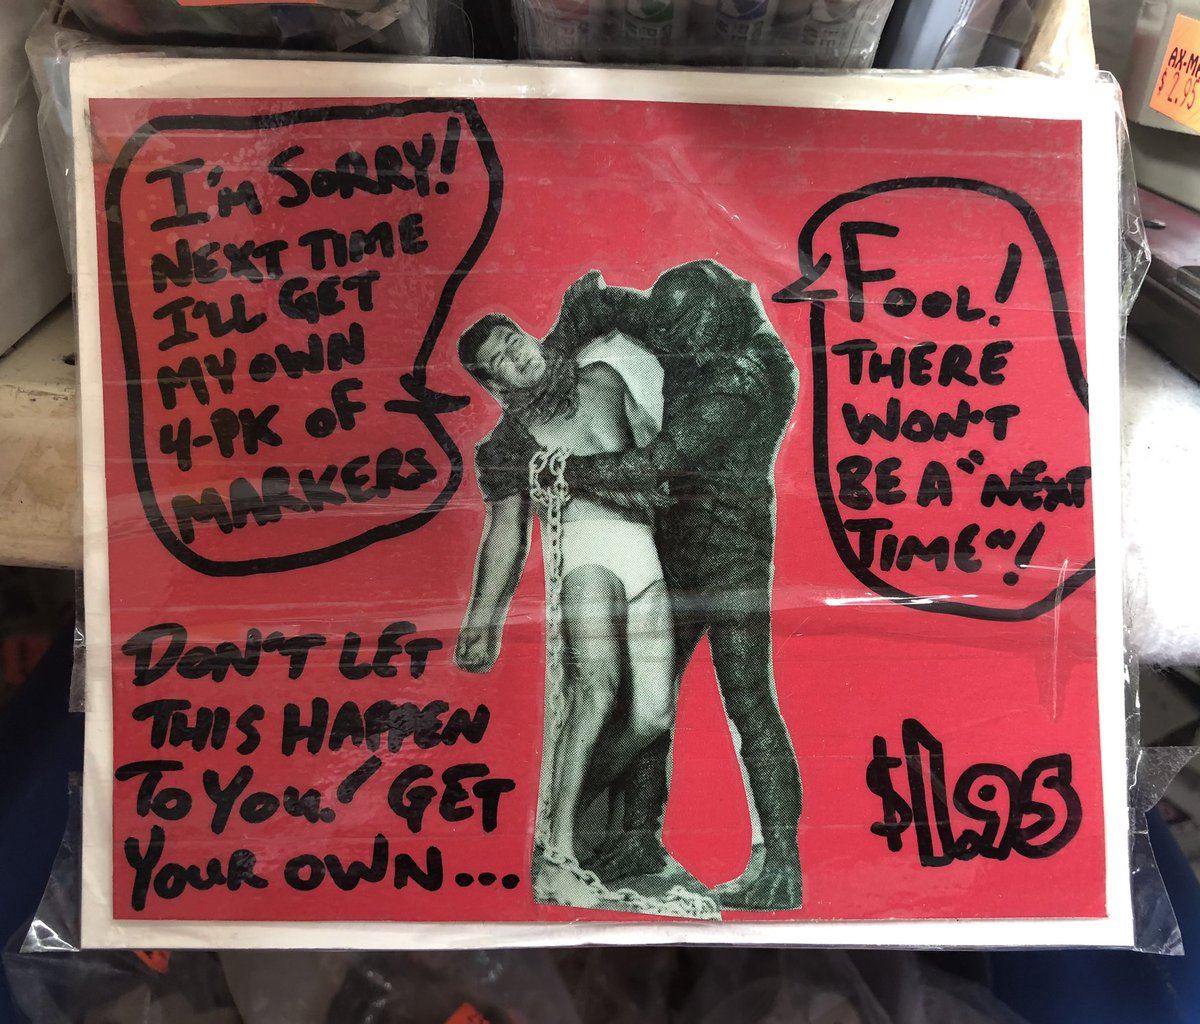 I'm SORRY!
NEXT TIME
I'LL GET
MY OWN
4-PK OF
MARKERS
FOOL!
THERE
WON'T
BE A "NEXT
TIME"!
DON'T LET
THIS HAPPEN
TO YOU! GET
YOUR OWN...
$1.95
AX-M
$2.95